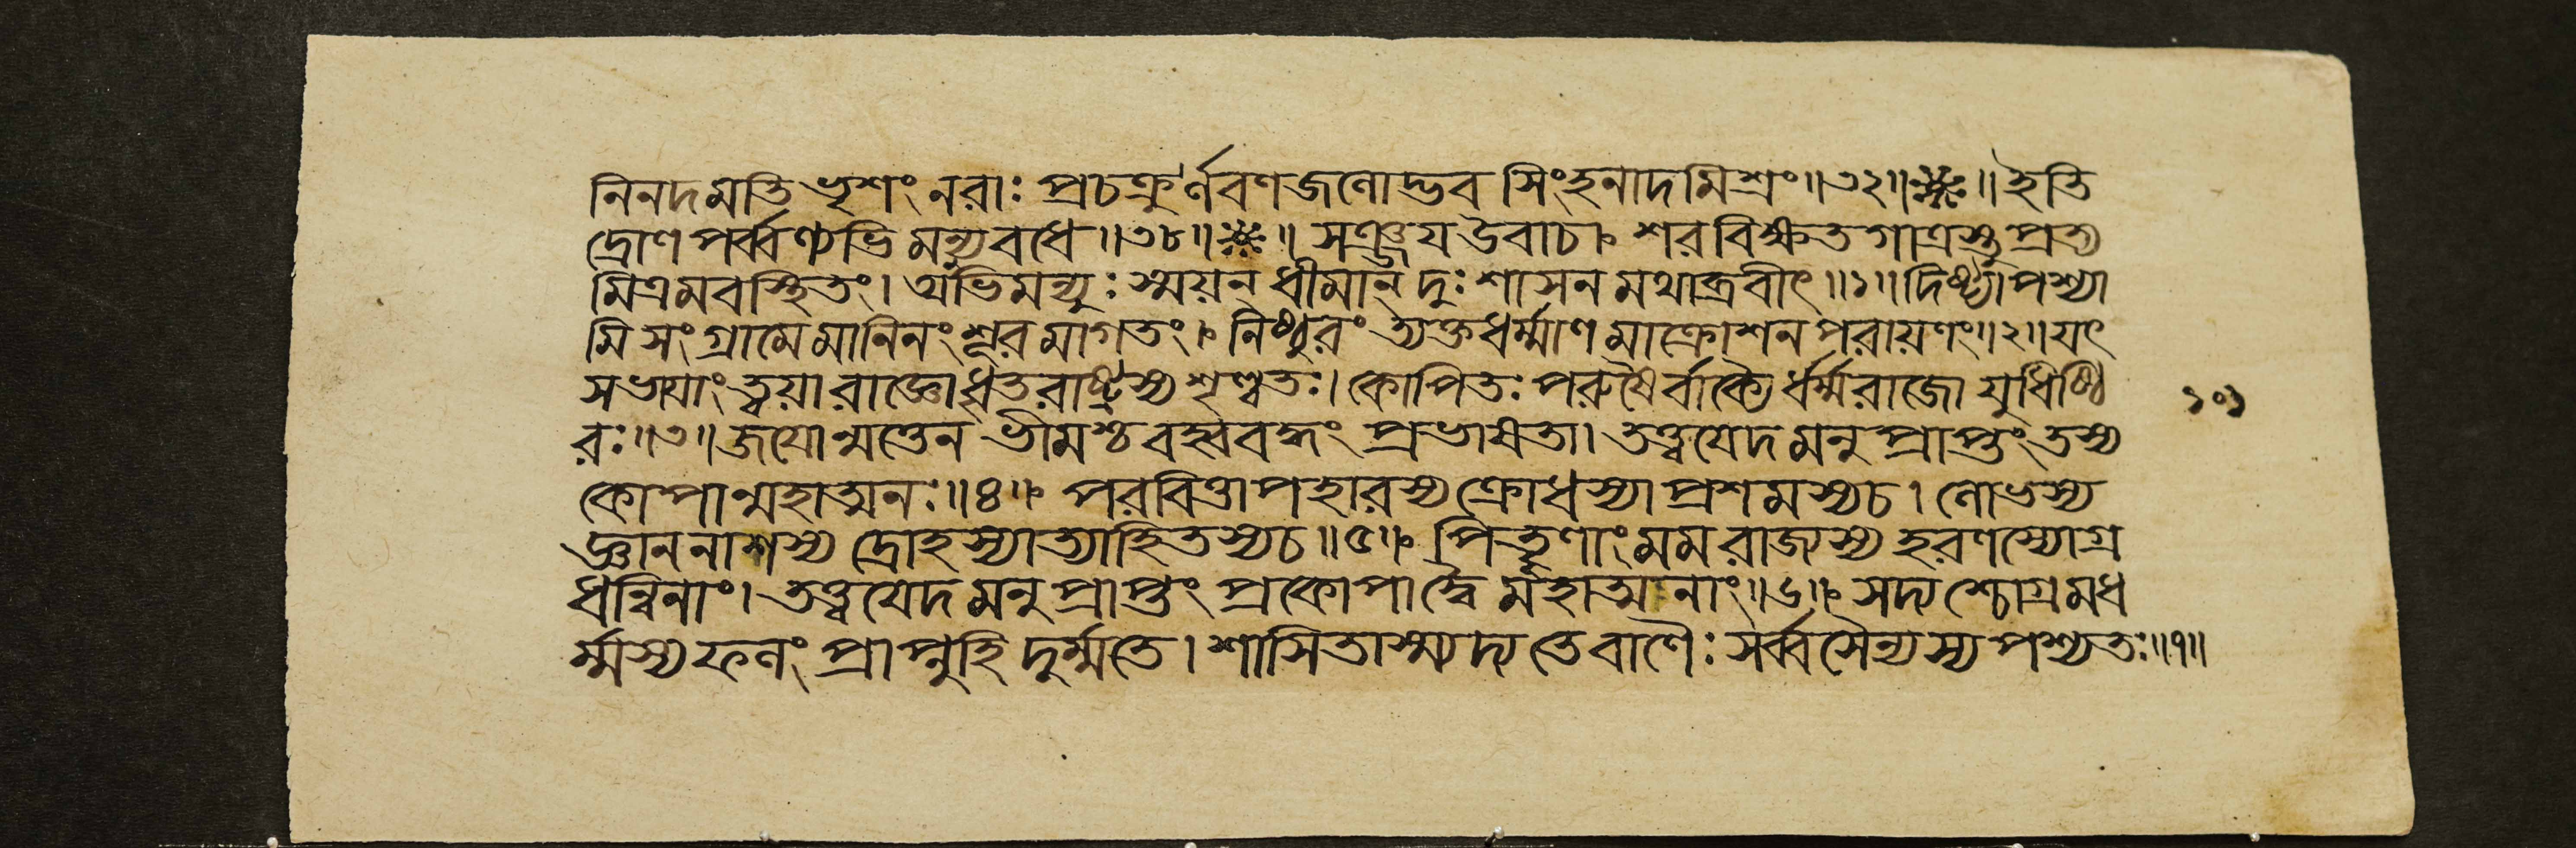 নিনদমতিভৃশং নরাঃ প্রচক্রুর্ণবণজণোদ্ভবসিংহনাদমিশ্রং॥৩২॥❋॥ইতি
দ্রোণপর্ব্বণ্যভিমন্যুবধে॥৩৮॥❋॥ সঞ্জয় উবাচ। শরবিক্ষতগাত্রস্তু প্রত্য
মিত্রমবস্থিতং। অভিমন্যুঃ স্ময়ন্ ধীমান্ দুঃশাসনমথাব্রবীৎ॥১॥ দিষ্ট্যা পশ্যা
মি সংগ্রামে মানিনং শূরমাগতং। নিষ্ঠুরং ত্যক্তধর্ম্মাণমাক্রোশনপরায়ণং॥২॥ যৎ
সভায়াং ত্বয়া রাজ্ঞো ধৃতরাষ্ট্রস্য শৃণ্বতঃ। কোপিতঃ পরুষৈর্বাক্যৈর্ধর্ম্মরাজো যুধিষ্ঠি
রঃ॥৩॥ জয়োন্মত্তেন ভীমশ্চ বহ্ববদ্ধং প্রভাষতা। তত্ত্বয়েদমনুপ্রাপ্তং তস্য
কোপান্মহাত্মনঃ॥৪॥ পরবিত্তাপহারস্য ক্রোধস্যাপ্রশমস্য চ। ণোভস্য
জ্ঞাননাশস্য দ্রোহস্যাত্যাহিতস্য চ॥৫॥ পিতৄণাং মম রাজ্যস্য হরণস্যোগ্র
ধন্বিনাং। তত্ত্বয়েদমনুপ্রাপ্তং প্রকোপাদ্বৈ মহাত্মনাং॥৬॥ সদ্যশ্চোগ্রমধ
র্ম্মস্য ফণং প্রাপ্নুহি দুর্ম্মতে। শাসিতাস্ম্যদ্য তে বাণৈঃ সর্ব্বসৈন্যস্য পশ্যতঃ॥৭॥
১০১